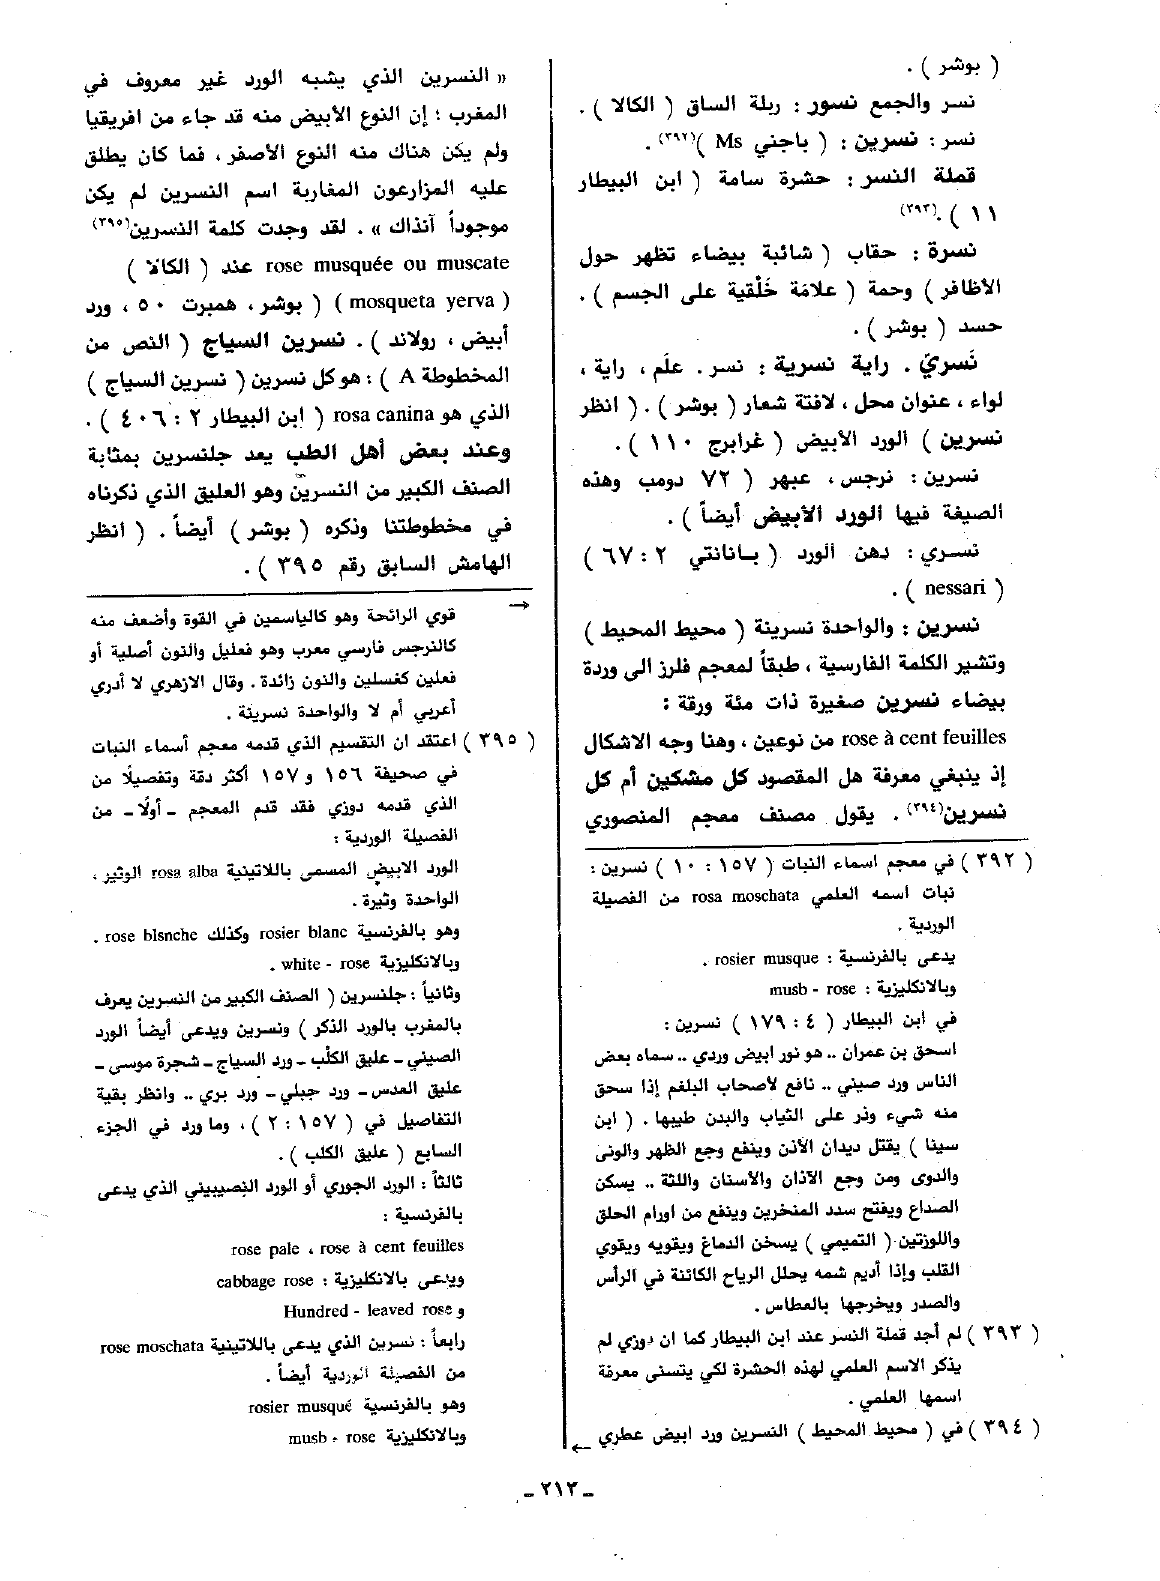 ( بوشر ) .
نسر والجمع نسور : ربلة الساق ( الكالا ) .
نسر : نسرين : ( باجني Ms )(٣٩٢) .
قملة النسر : حشرة سامة ( ابن البيطار
١١ ) .(٣٩٣)
نسرة : حقاب ( شائبة بيضاء تظهر حول
الأظافر ) وحمة ( علامَة خَلْقية على الجسم ) .
حسد ( بوشر ) .
نَسريّ . راية نسرية : نسر . علَم ، راية ،
لواء ، عنوان محل ، لافتة شعار ( بوشر ) . ( انظر
نسرين ) الورد الأبيض ( غرابرج ١١٠ ) .
نسرين : نرجس ، عبهر ( ٧٢ دومب وهذه
الصيغة فيها الورد الأبيض أيضاً ) .
نسري : دهن الورد ( بانانتي ٢ : ٦٧ )
( nessari ) .
نسرين : والواحدة نسرينة ( محيط المحيط )
وتشير الكلمة الفارسية ، طبقاً لمعجم فلرز الى وردة
بيضاء نسرين صغيرة ذات مئة ورقة :
rose à cent feuilles من نوعين ، وهنا وجه الاشكال
إذ ينبغي معرفة هل المقصود كل مشكين أم كل
نسرين(٣٩٤) . يقول مصنف معجم المنصوري
( ٣٩٢ ) في معجم اسماء النبات ( ١٥٧ : ١٠ ) نسرين :
نبات اسمه العلمي rosa moschata من الفصيلة
الوردية .
يدعى بالفرنسية : rosier musque .
وبالانكليزية : musb - rose
في ابن البيطار ( ٤ : ١٧٩ ) نسرين :
اسحق بن عمران .. هو نور ابيض وردي .. سماه بعض
الناس ورد صيني .. نافع لأصحاب البلغم إذا سحق
منه شيء وذر على الثياب والبدن طيبها . ( ابن
سينا ) يقتل ديدان الأذن وينفع وجع الظهر والونى
والدوى ومن وجع الآذان والأسنان واللثة .. يسكن
الصداع ويفتح سدد المنخرين وينفع من اورام الحلق
واللوزتين . ( التميمي ) يسخن الدماغ ويقويه ويقوي
القلب وإذا أديم شمه يحلل الرياح الكائنة في الرأس
والصدر ويخرجها بالعطاس .
( ٣٩٣ ) لم أجد قملة النسر عند ابن البيطار كما ان دوزي لم
يذكر الاسم العلمي لهذه الحشرة لكي يتسنى معرفة
اسمها العلمي .
( ٣٩٤ ) في ( محيط المحيط ) النسرين ورد ابيض عطري ←
« النسرين الذي يشبه الورد غير معروف في
المغرب ؛ إن النوع الأبيض منه قد جاء من افريقيا
ولم يكن هناك منه النوع الأصفر ، فما كان يطلق
عليه المزارعون المغاربة اسم النسرين لم يكن
موجوداً آنذاك » . لقد وجدت كلمة النسرين(٣٩٥)
rose musquée ou muscate عند ( الكالا )
( mosqueta yerva ) ( بوشر ، همبرت ٥٠ ، ورد
أبيض ، رولاند ) . نسرين السياج ( النص من
المخطوطة A ) : هو كل نسرين ( نسرين السياج )
الذي هو rosa canina ( ابن البيطار ٢ : ٤٠٦ ) .
وعند بعض أهل الطب يعد جلنسرين بمثابة
الصنف الكبير من النسرين وهو العليق الذي ذكرناه
في مخطوطتنا وذكره ( بوشر ) أيضاً . ( انظر
الهامش السابق رقم ٣٩٥ ) .
→
قوي الرائحة وهو كالياسمين في القوة وأضعف منه
كالنرجس فارسي معرب وهو فعليل والنون أصلية أو
فعلين كغسلين والنون زائدة . وقال الازهري لا أدري
أعربي أم لا والواحدة نسرينة .
( ٣٩٥ ) اعتقد ان التقسيم الذي قدمه معجم أسماء النبات
في صحيفة ١٥٦ و ١٥٧ أكثر دقة وتفصيلًا من
الذي قدمه دوزي فقد قدم المعجم ـ أولًا ـ من
الفصيلة الوردية :
الورد الابيض المسمى باللاتينية rosa alba الوثير ،
الواحدة وثيرة .
وهو بالفرنسية rosier blanc وكذلك rose blsnche .
وبالانكليزية white - rose .
وثانياً : جلنسرين ( الصنف الكبير من النسرين يعرف
بالمغرب بالورد الذكر ) ونسرين ويدعى أيضاً الورد
الصيني ـ عليق الكلْب ـ ورد السياج ـ شجرة موسى ـ
عليق العدس ـ ورد جبلي ـ ورد بري .. وانظر بقية
التفاصيل في ( ١٥٧ : ٢ ) ، وما ورد في الجزء
السابع ( عليق الكلب ) .
ثالثاً : الورد الجوري أو الورد النصيبيني الذي يدعى
بالفرنسية :
rose pale ، rose à cent feuilles
ويدعى بالانكليزية : cabbage rose
و Hundred - leaved rose
رابعاً : نسرين الذي يدعى باللاتينية rose moschata
من الفصيلة الوردية أيضاً .
وهو بالفرنسية rosier musqué
وبالانكليزية musb - rose
ـ ٢١٣ ـ